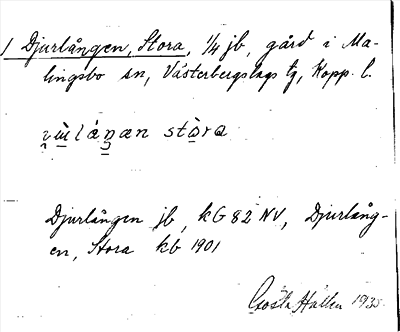 1 Djurlången, Stora, 1/4 jb, gård i Ma-
lingsbo sn, Västerbergslags tg, Kopp. l.
stora
Djurlången jb, kG 82 NV, Djurlång-
en, Stora kb 1901
Gösta Hallén 1935